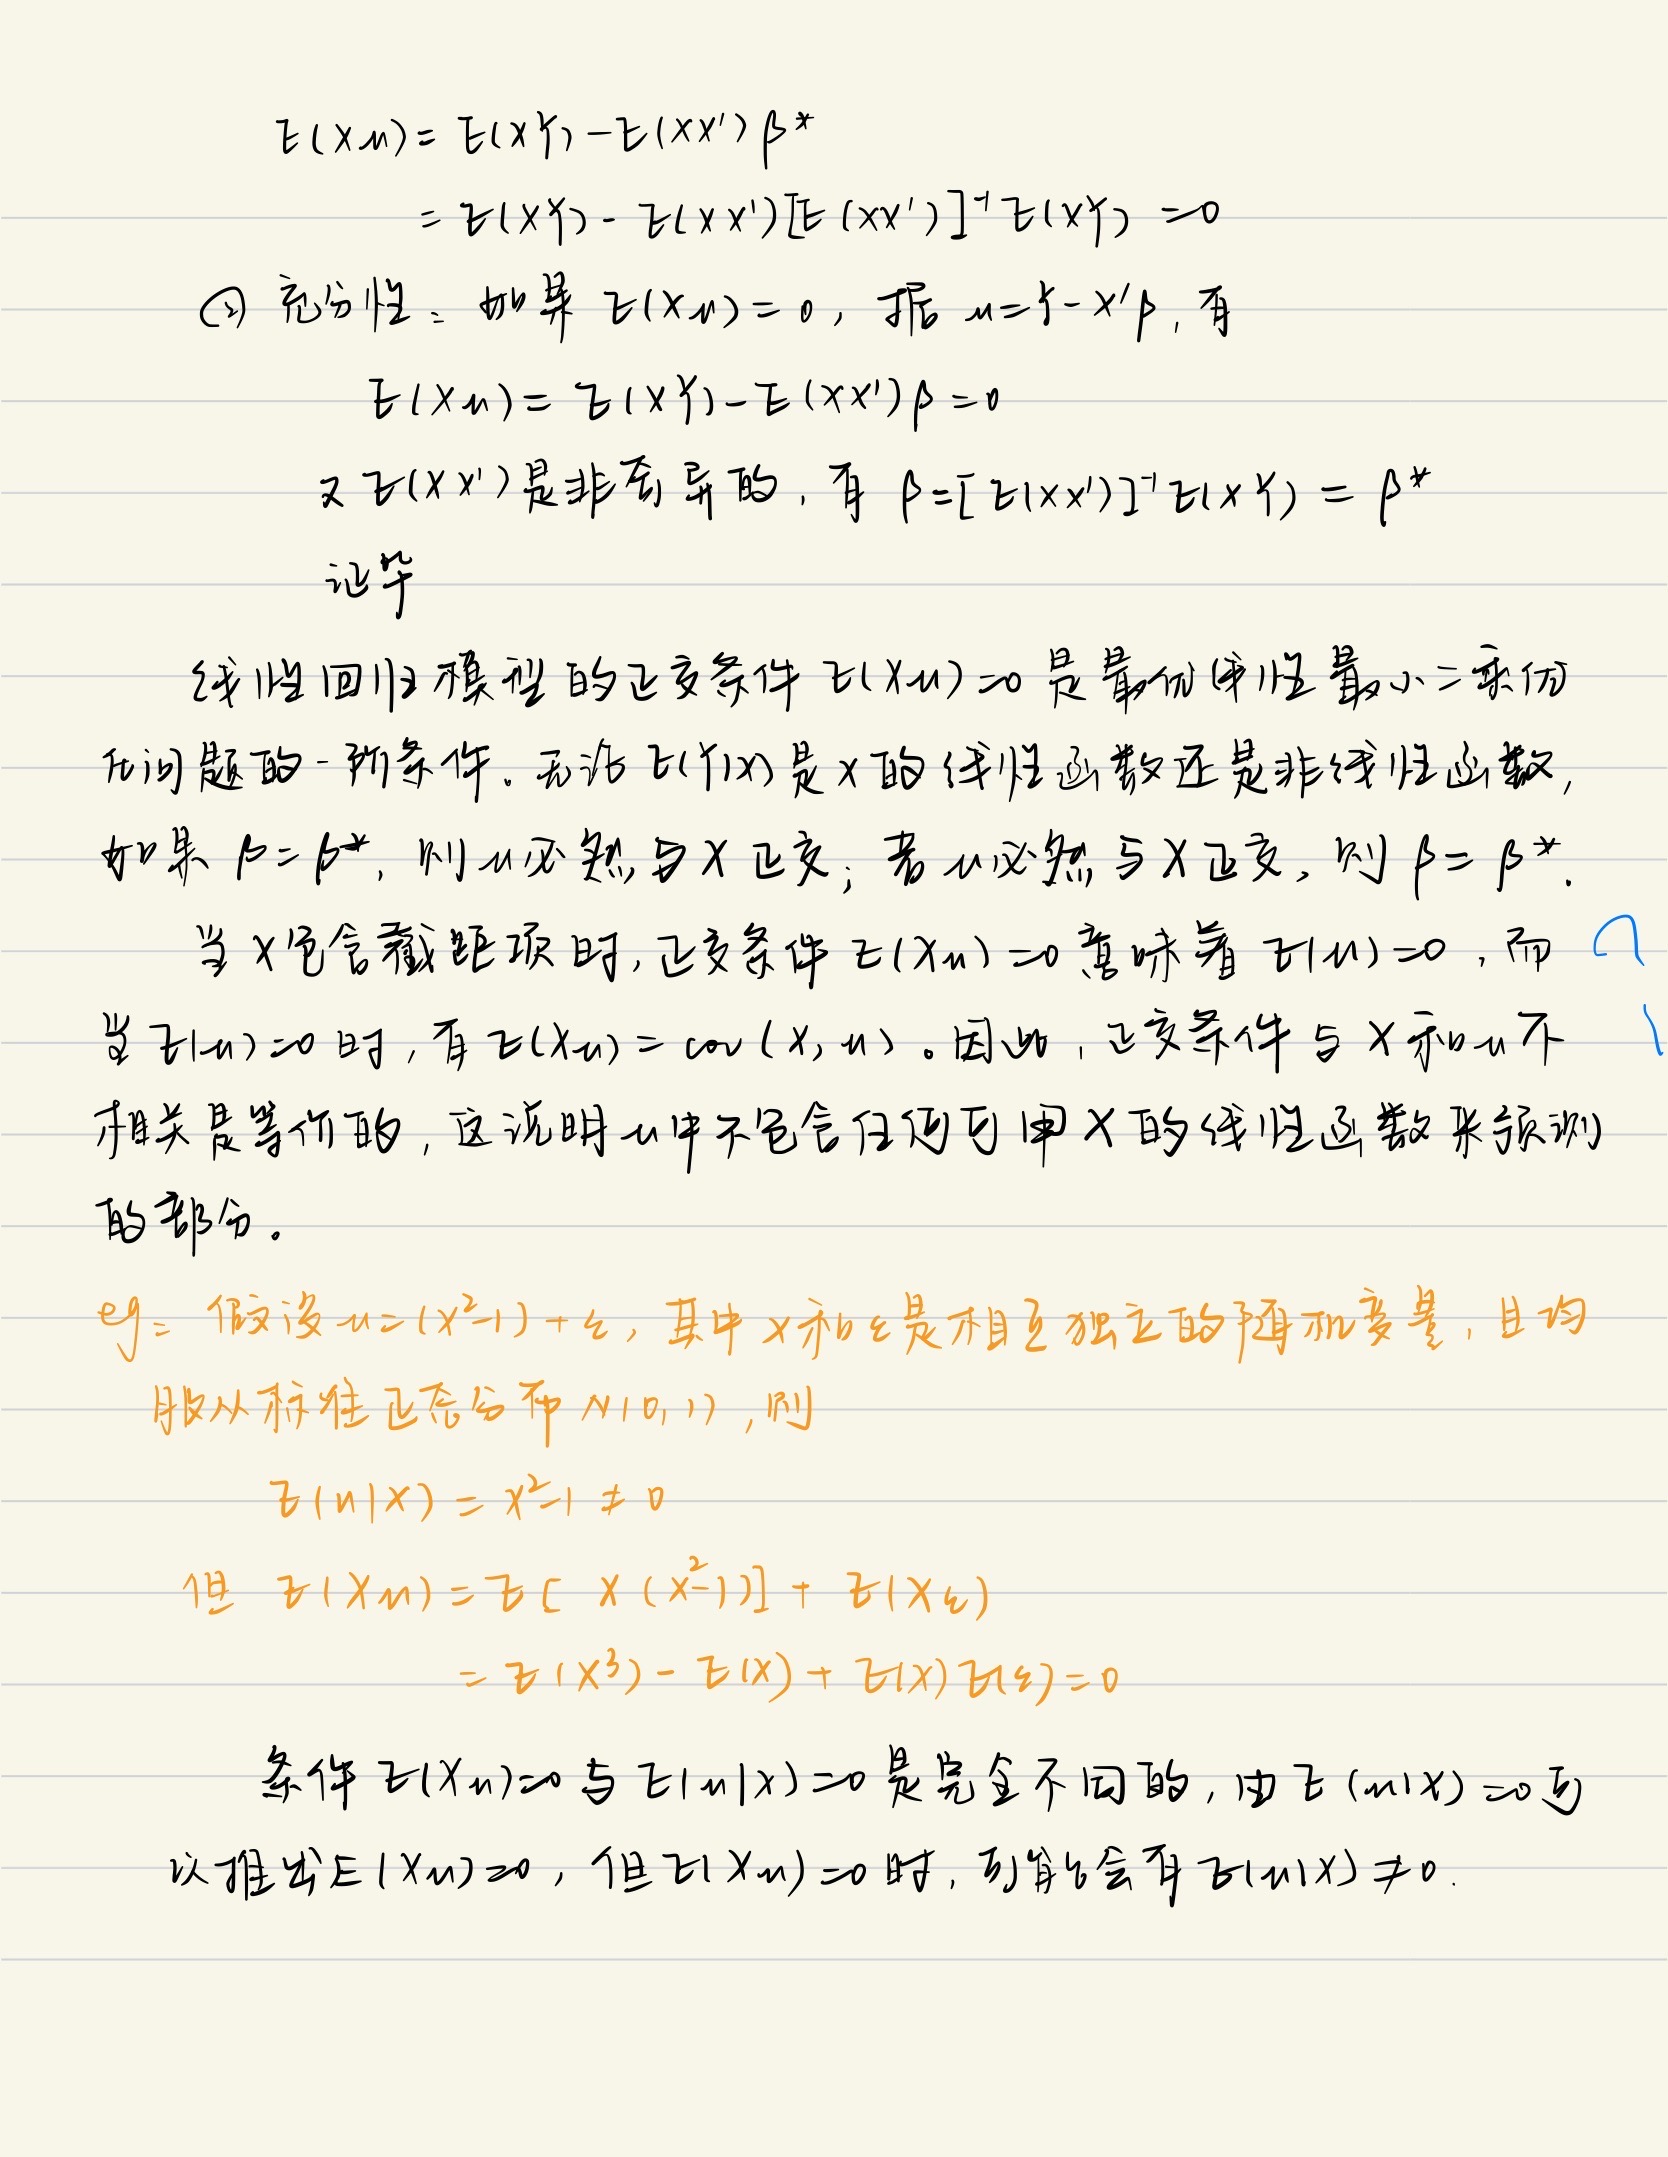 E(Xu) = E(XY) - E(XX')β*
= E(XY) - E(XX')[E(XX')]⁻¹E(XY) = 0
② 充分性：如果 E(Xu) = 0, 据 u = Y - X'β, 有
E(Xu) = E(XY) - E(XX')β = 0
又 E(XX') 是非奇异的, 有 β = [E(XX')]⁻¹E(XY) = β*
证毕
线性回归模型的正交条件 E(Xu) = 0 是最优线性最小二乘优
化问题的一阶条件。无论 E(Y|X) 是 X 的线性函数还是非线性函数,
如果 β = β*, 则 u 必然与 X 正交; 若 u 必然与 X 正交, 则 β = β*.
当 X 包含截距项时, 正交条件 E(Xu) = 0 意味着 E(u) = 0, 而
当 E(u) = 0 时, 有 E(Xu) = cov(X, u)。因此, 正交条件与 X 和 u 不
相关是等价的, 这说明 u 中不包含任何可用 X 的线性函数来预测
的部分。
eg: 假设 u = (X²-1) + ε, 其中 X 和 ε 是相互独立的随机变量, 且均
服从标准正态分布 N(0,1), 则
E(u|X) = X²-1 ≠ 0
但 E(Xu) = E[X(X²-1)] + E(Xε)
= E(X³) - E(X) + E(X)E(ε) = 0
条件 E(Xu) = 0 与 E(u|X) = 0 是完全不同的, 由 E(u|X) = 0 可
以推出 E(Xu) = 0, 但 E(Xu) = 0 时, 可能会有 E(u|X) ≠ 0.